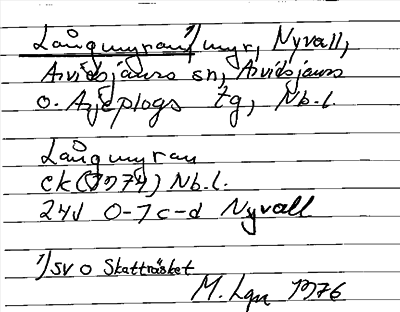 Långmyran¹) myr, Nyvall,
Arvidsjaurs sn, Arvidsjaurs
o. Arjeplogs tg, Nb.l.
Långmyran
ek (1974) Nb.l.
24J 0-1c-d Nyvall
¹) SV o Skatträsket
M. Lgn 1976